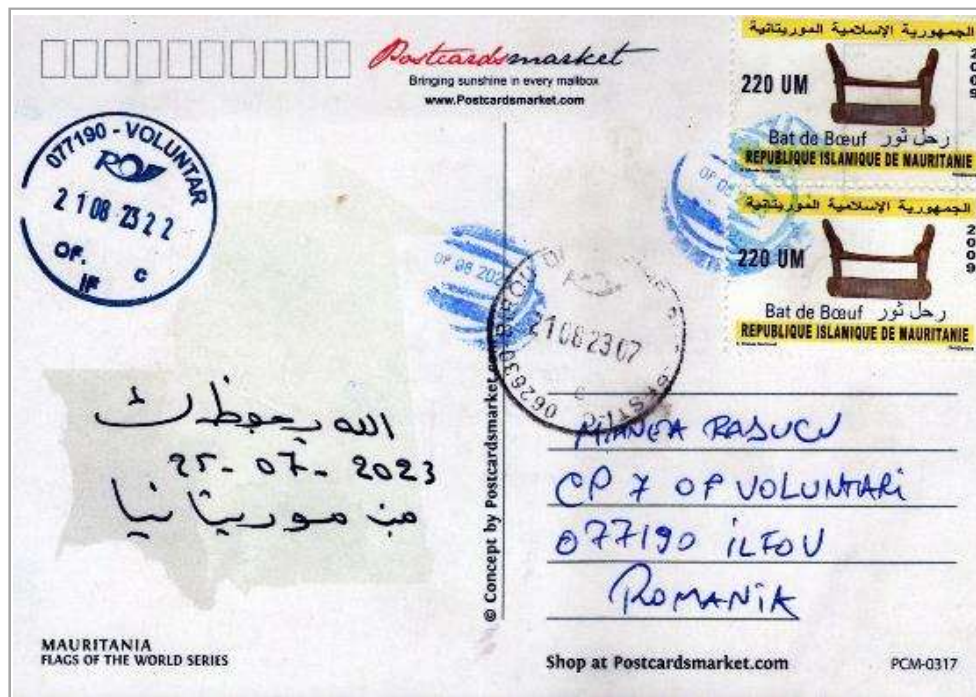 Postcardsmarket
Bringing sunshine in every mailbox
www.Postcardsmarket.com
الجمهورية الإسلامية الموريتانية
2009
220 UM
Bat de Bœuf رحل ثور
REPUBLIQUE ISLAMIQUE DE MAURITANIE
الجمهورية الإسلامية الموريتانية
2009
220 UM
Bat de Bœuf رحل ثور
REPUBLIQUE ISLAMIQUE DE MAURITANIE
077190 - VOLUNTAR
21 08 23 22
OF. C
IF
21 08 23 07
الله يحفظك
25-07-2023
من موريتانيا
© Concept by Postcardsmarket
RADUCU
CP 7 OF VOLUNTARI
077190 ILFOV
ROMANIA
MAURITANIA
FLAGS OF THE WORLD SERIES
Shop at Postcardsmarket.com
PCM-0317